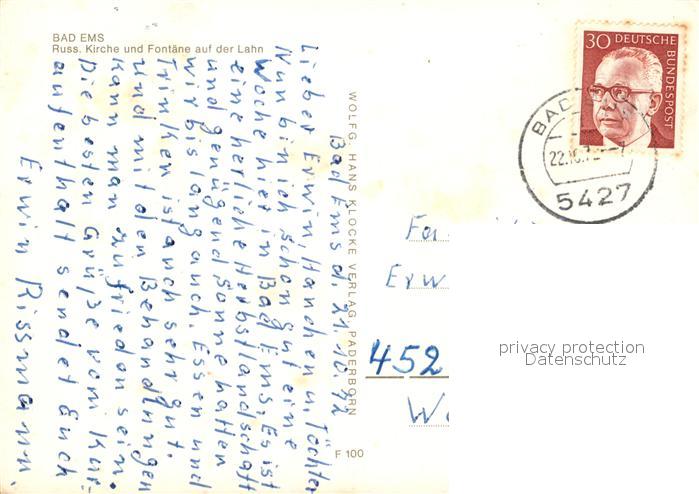 BAD EMS
Russ. Kirche und Fontäne auf der Lahn
Bad Ems d. 21.10.72
Lieber Erwin, Hanchen u. Töchter
Nun bin ich schon gut eine
Woche hier in Bad Ems. Es ist
eine herliche Herbstlandschaft
und genügend Sonne hatten
wir bis lang auch. Essen und
Trinken ist auch sehr gut.
und mit den Behandlungen
kann man zufrieden sein.
Die besten Grüße vom Kur-
aufenthalt sendet Euch
Erwin Rissmann.
WOLFG. HANS KLOCKE VERLAG, PADERBORN
F 100
30 DEUTSCHE
BUNDESPOST
BAD
22.10.7
5427
Fa
Erw
452
privacy protection
Datenschutz